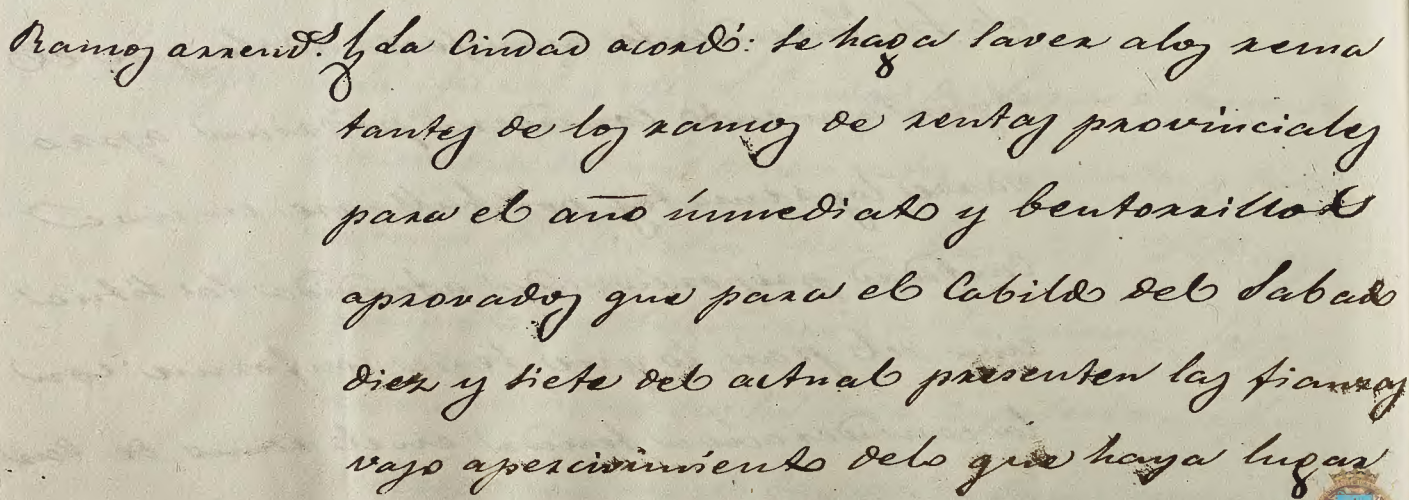 Ramos arrend.s La Ciudad acordó: Se haga saver alos rema
tantes de los ramos de rentas provinciales
para el año inmediato y bentorrillos
aprovados que para el Cabildo del Sabado
diez y siete del actual presenten las fianzas
vajo apercivimiento delo que haya lugar